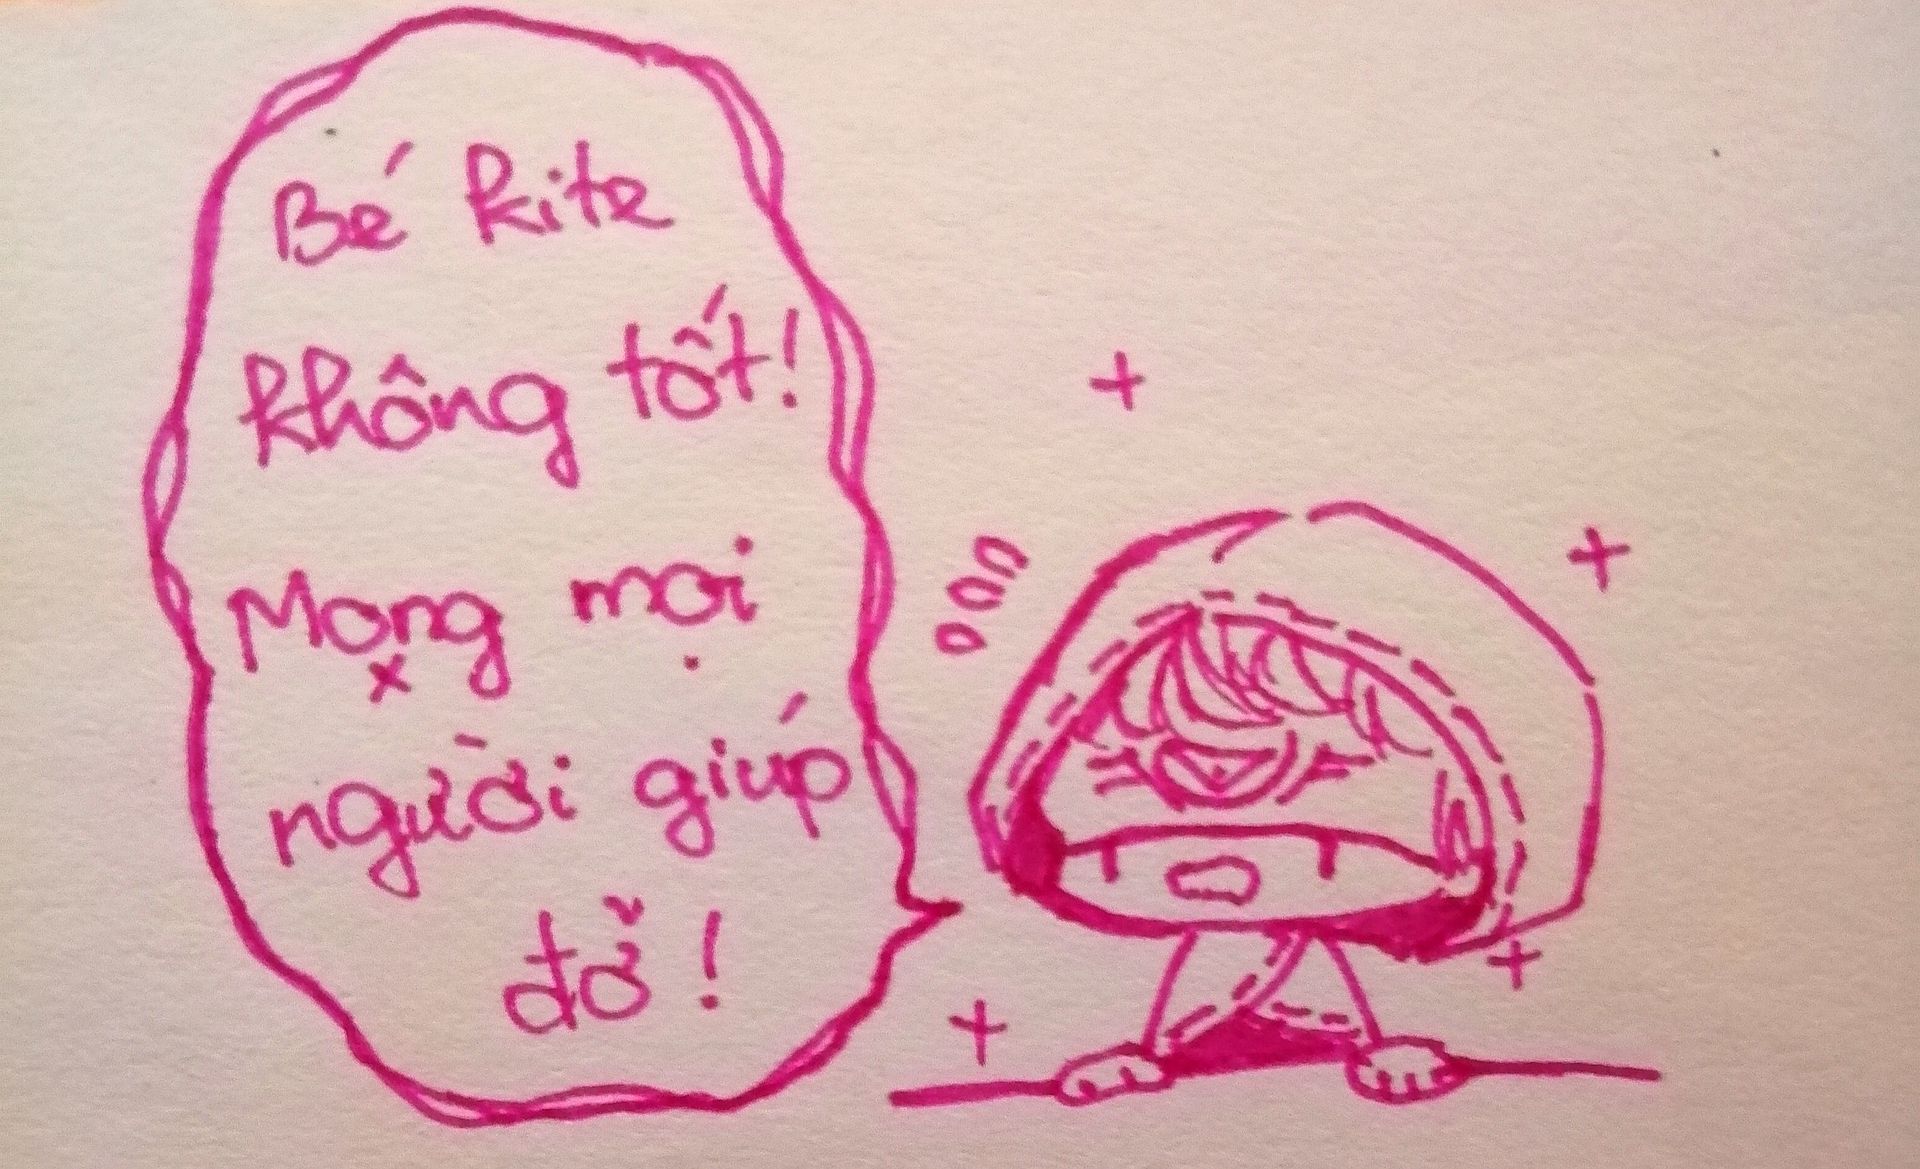 Bé kite
không tốt!
Mong mọi
người giúp
đỡ!